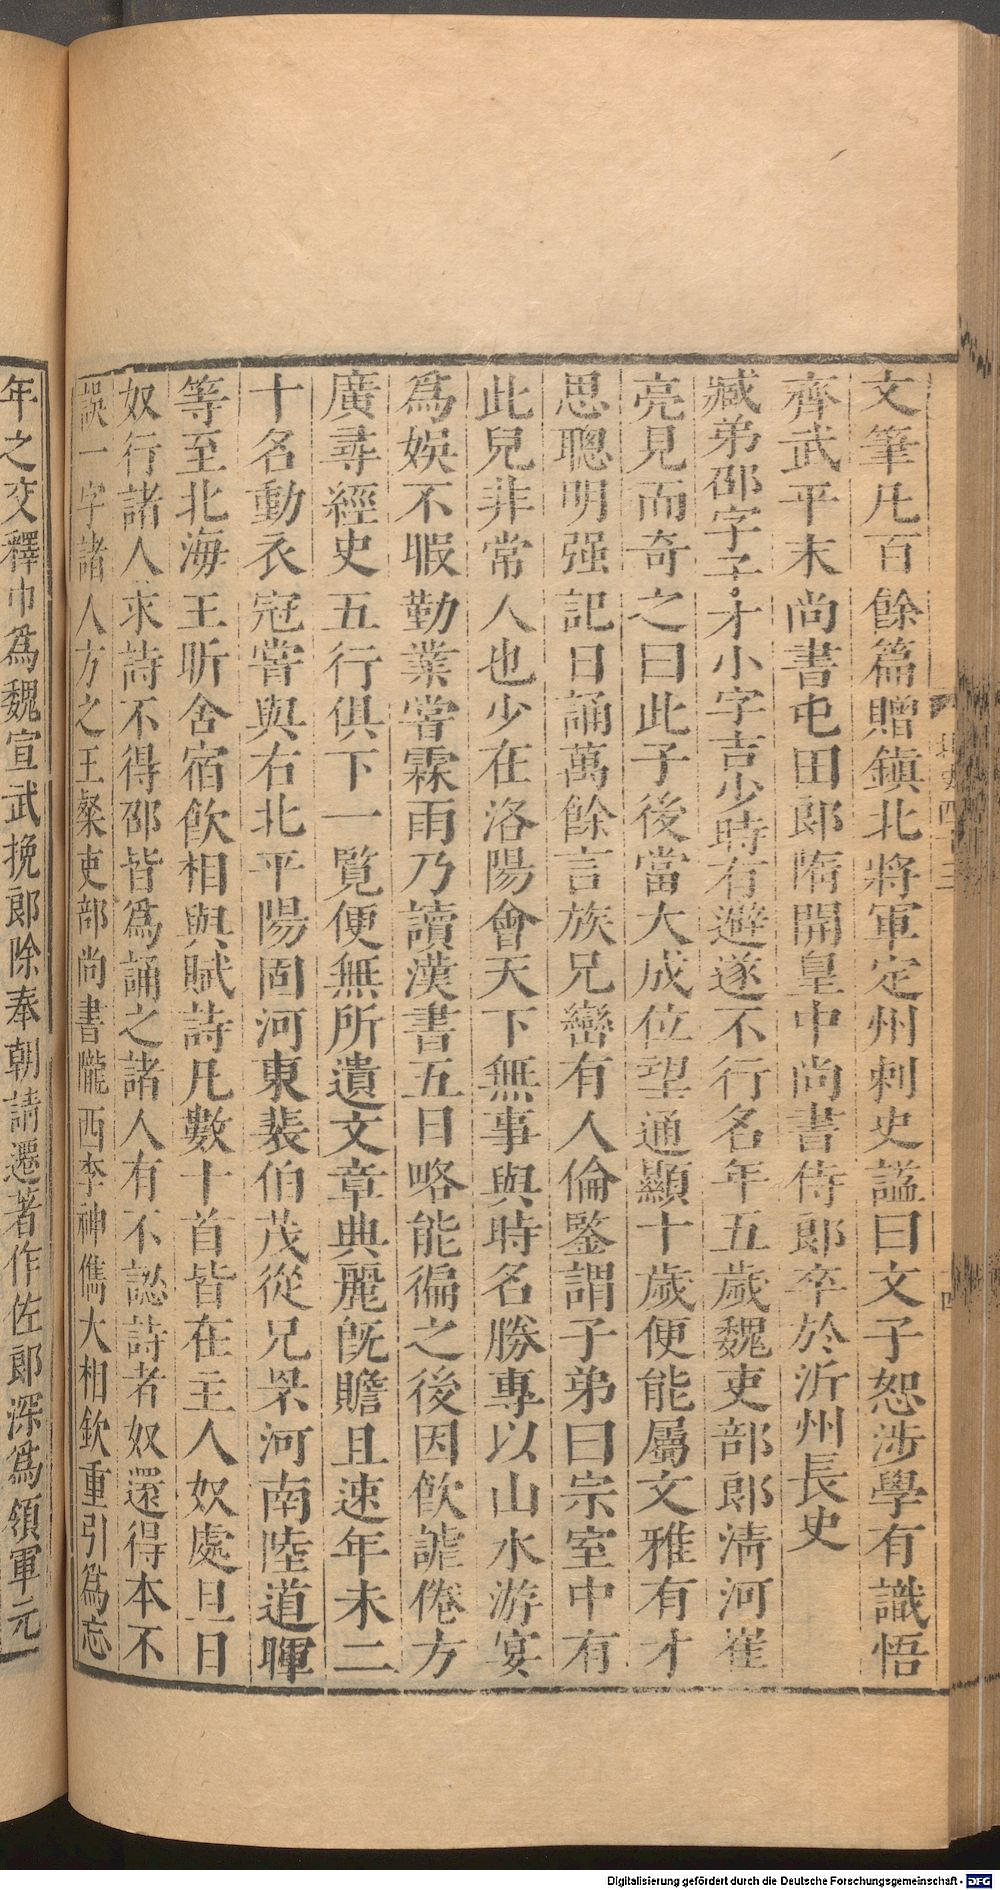 文筆凡百餘篇贈鎮北將軍定州刺史諡曰文子恕涉學有識悟
齊武平末尚書屯田郎隋開皇中尚書侍郎卒於沂州長史
臧弟邵字子才小字吉少時有避遂不行名年五歲魏吏部郎淸河崔
亮見而奇之曰此子後當大成位望通顯十歲便能屬文雅有才
思聰明强記日誦萬餘言族兄巒有人倫鑒謂子弟曰宗室中有
此兒非常人也少在洛陽會天下無事與時名勝專以山水游宴
爲娛不暇勤業嘗霖雨乃讀漢書五日略能徧之後因飮謔倦方
廣尋經史五行俱下一覽便無所遺文章典麗旣贍且速年未二
十名動衣冠嘗與右北平陽固河東裴伯茂從兄罘河南陸道暉
等至北海王昕舍宿飮相與賦詩凡數十首皆在主人奴處旦日
奴行諸人求詩不得邵皆爲誦之諸人有不認詩者奴還得本不
誤一字諸人方之王粲吏部尚書隴西李神儁大相欽重引爲忘
年之交釋巾爲魏宣武挽郎除奉朝請遷著作佐郎深爲領軍元
四十三
十四
Digitalisierung gefördert durch die Deutsche Forschungsgemeinschaft - DFG